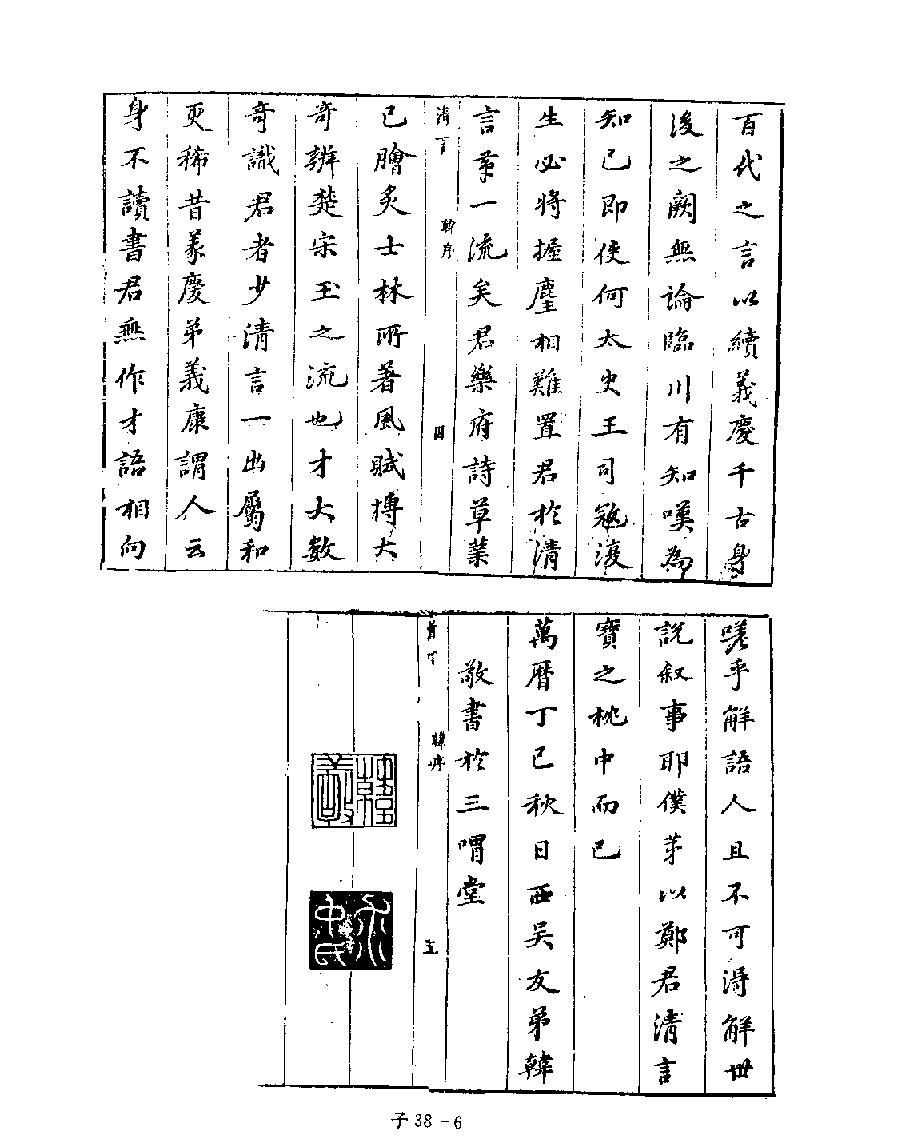 百代之言以續義慶千古身
後之闕無論臨川有知嘆為
知己即使何太史王司寇復
生必將握麈相難置君於清
言第一流矣君樂府詩草業
清言 韓序 四
已膾炙士林所著風賦摶大
奇辨楚宋玉之流也才大數
奇識君者少清言一出屬和
更稀昔義慶弟義康謂人云
身不讀書君無作才語相向
嗟乎解語人且不可淂解世
說叙事耶僕苐以鄭君清言
寶之枕中而已
萬曆丁巳秋日西吴友弟韓
敬書於三喟堂
清言 韓序 五
韓敬
求仲氏
子38-6